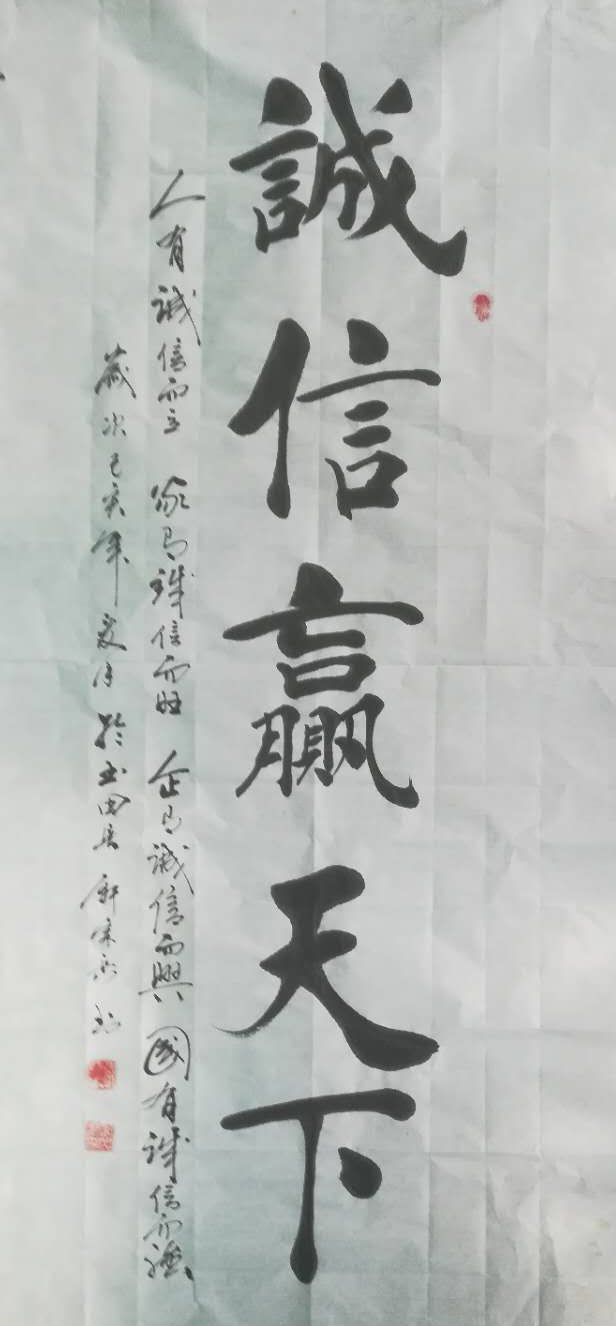 誠信贏天下
人有誠信而立 家有誠信而旺 企有誠信而興 國有誠信而強
歲次己亥年夏月於玉田县